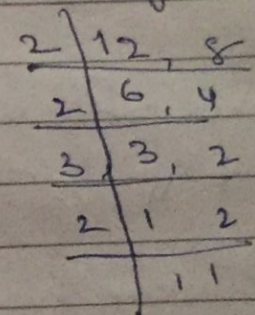 2 12, 8
2 6, 4
3 3, 2
2 1 2
1 1